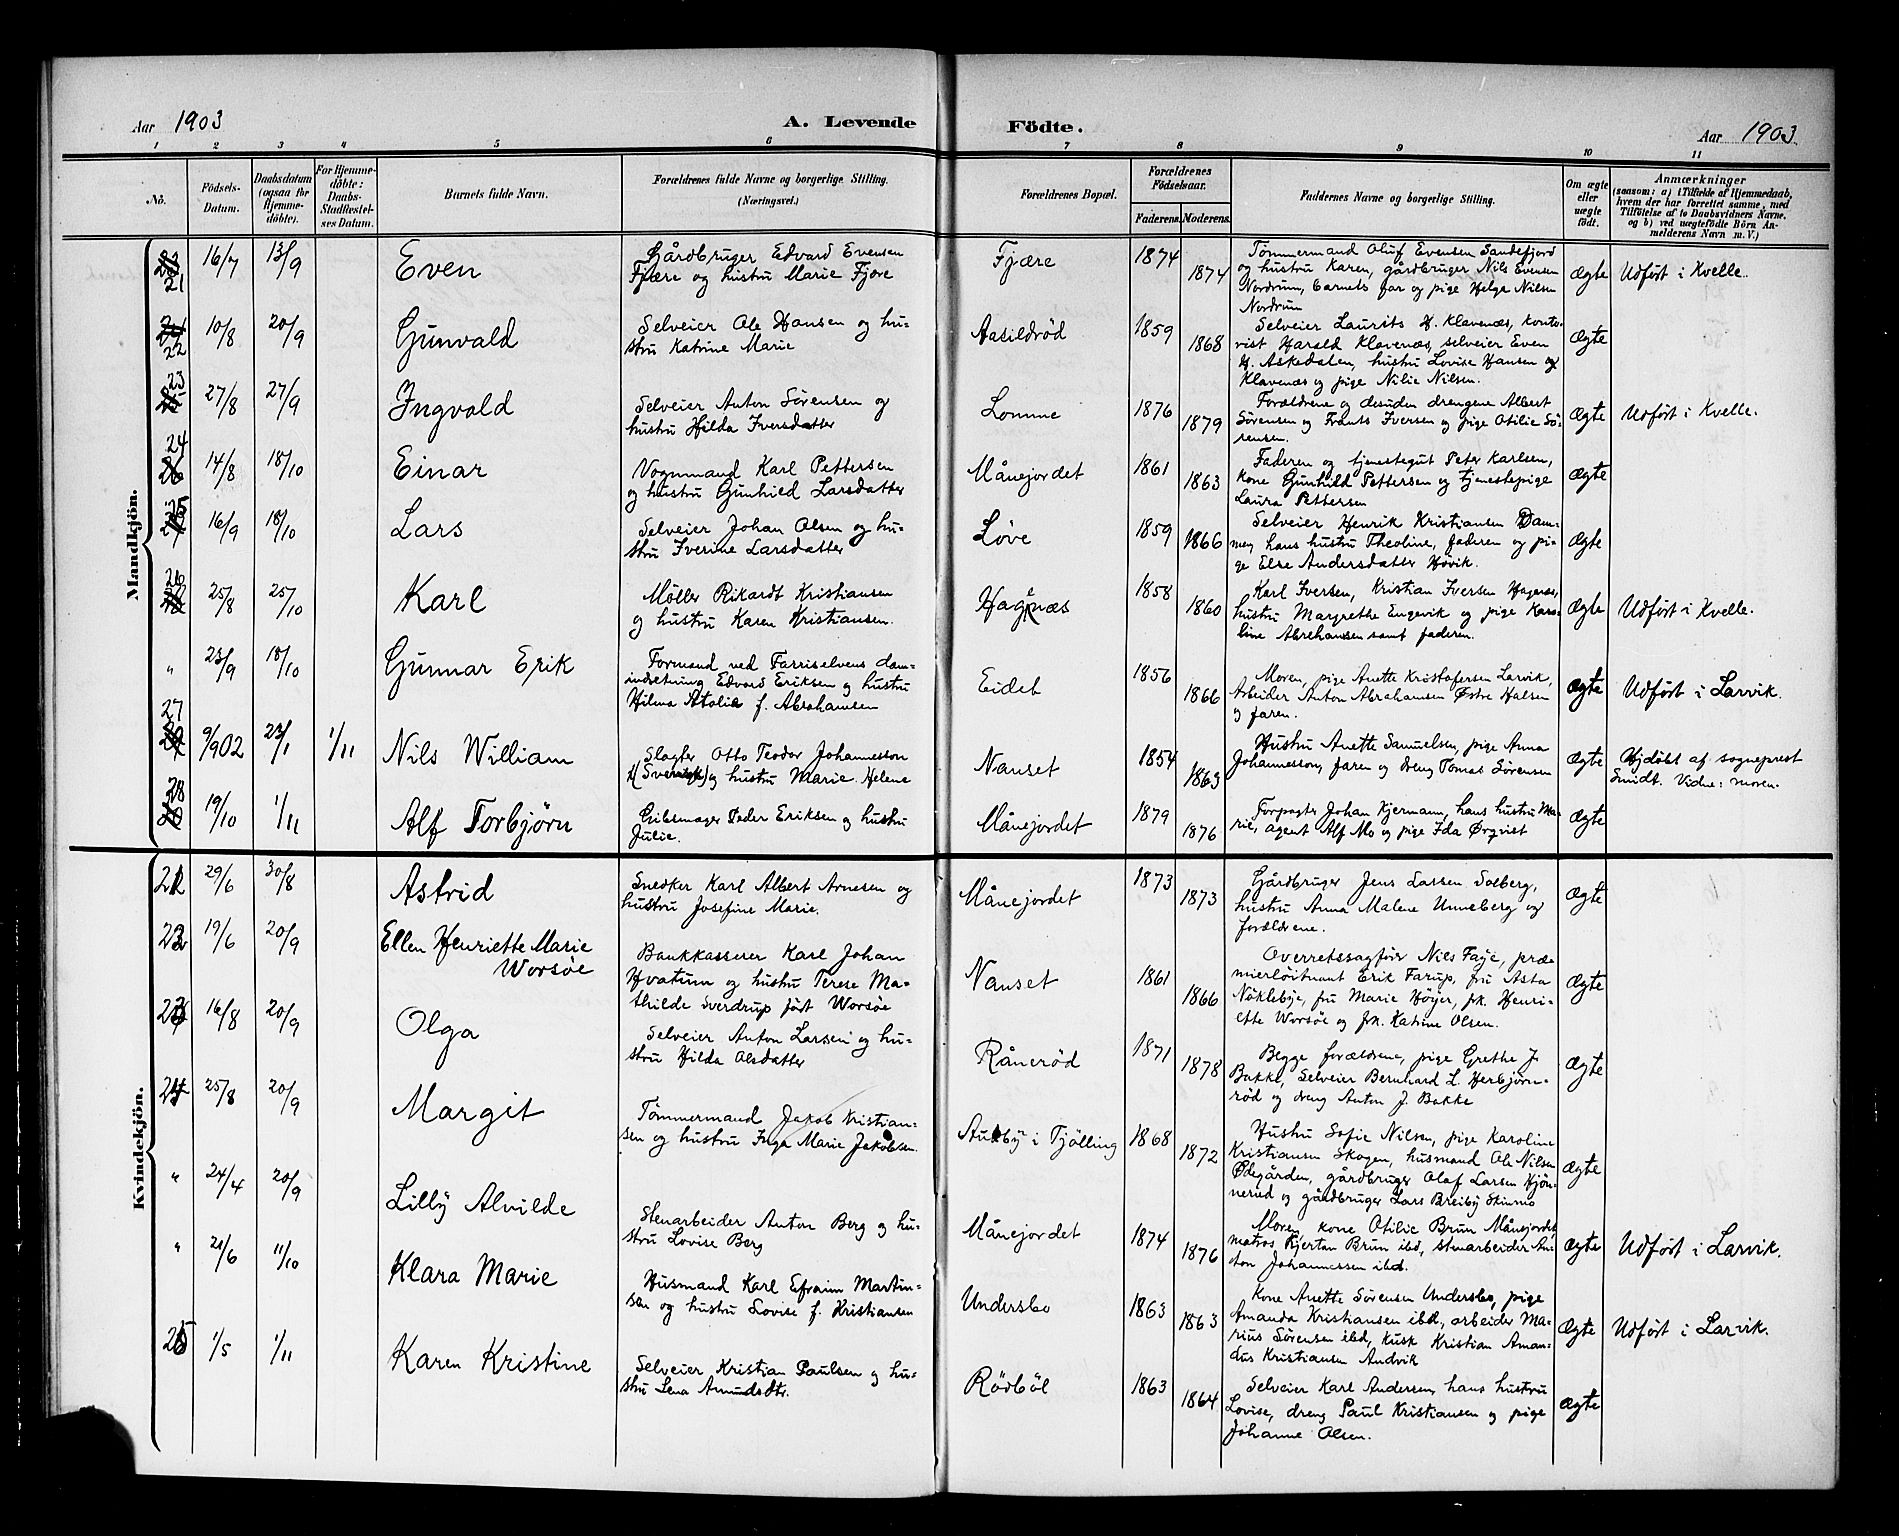 Aar 1903
A. Levende
Födte.
Aar 1903
1 2 3 4 5 6 7 8 9 10 11
No.
Födsels-
Datum.
Daabsdatum
(ogsaa for
Hjemme-
döbte).
For Hjemme-
döbte:
Daabs-
Stadfæstel-
ses Datum.
Barnets fulde Navn.
Forældrenes fulde Navne og borgerlige Stilling.
(Næringsvei.)
Forældrenes Bopæl.
Forældrenes
Födselsaar.
Faderens. Moderens.
Faddernes Navne og borgerlige Stilling.
Om ægte
eller
uægte
födt.
Anmærkninger
(saasom: a) i Tilfælde af Hjemmedaab,
hvem der har forrettet samme, med
Tilföielse af to Daabsvidners Navne.
og b) ved uægtefödte Börn An-
melderens Navn m. V.)
Mandkjön.
21 16/7 13/9 Even
Gårdbruger Edvard Evensen
Fjære og hustru Marie Fjøre
Fjære 1874 1874
Tömmermand Oluf Evensen Sandefjord
og hustru Karen, gårdbruger Nils Evensen
Nordrum, barnets far og pige Helga Nilsen
Nordrum
Ægte Udført i Kvelle.
22 10/8 20/9 Gunvald
Selveier Ole Hansen og hu-
stru Katrine Marie
Aasildröd 1859 1868
Selveier Laurits H. Klavenæs, konto-
rist Harald Klavenæs, selveier Even
H. Askedalen, hustru Lovise Hansen og
Klavenæs og pige Nilie Nilsen.
Ægte
23 27/8 27/9 Ingvald
Selveier Anton Sørensen og
hustru Hilda Iversdatter
Lomme 1876 1879
Forældrene og desuden drengene Albert
Sørensen og Frants Iversen og pige Otilie Sö-
rensen.
Ægte Udført i Kvelle.
24 14/8 18/10 Einar
Vognmand Karl Pettersen
og hustru Gunhild Larsdatter
Månejordet 1861 1863
Faderen og tjenestegut Peter Karlsen,
kone Gunhild Pettersen og tjenestepige
Laura Pettersen
Ægte
25 16/9 18/10 Lars
Selveier Johan Olsen og hu-
stru Iverine Larsdatter
Löve 1859 1866
Selveier Henrik Kristiansen Dam-
men, hans hustru Theoline, faderen og pi-
ge Else Andersdatter Høvik.
Ægte
26 25/8 25/10 Karl
Møller Rikardt Kristiansen
og hustru Karen Kristiansen.
Hagnæs 1858 1860
Karl Iversen, Kristian Iversen Hagenæs,
hustru Margrethe Engevik og pige Karo-
line Abrahamsen samt faderen.
Ægte Udført i Kvelle.
" 23/9 18/10 Gunnar Erik
Formand ved Farriselvens dam-
indretning Edvard Eriksen og hustru
Hilma Atalia f. Abrahamsen
Eidet 1856 1866
Moren, pige Anette Kristofersen Larvik,
Arbeider Anton Abrahamsen Østre Halsen
og faren.
Ægte Udført i Larvik.
27 9/9 02 23/1 1/11 Nils William
Slagter Otto Teodor Johannesson
(Svensk) og hustru Marie Helene
Nanset 1854 1863
Hustru Anette Samuelsen, pige Anna
Johannesson, faren og dreng Tomas Sørensen
Ægte
Hjdöbt af sogneprest
Smidt. Vidne: moren.
28 19/10 1/11 Alf Torbjörn
Gibsmager Peder Eriksen og hustru
Julie.
Månejordet 1879 1876
Forpagter Johan Hjermann, hans hustru Ma-
rie, agent Alf Mo og pige Ida Ørqvist
Ægte
Kvindekjön.
21 29/6 30/8 Astrid
Snedker Karl Albert Arnesen og
hustru Josefine Marie.
Månejordet 1873 1873
Gårdbruger Jens Larsen Solberg,
hustru Anna Malene Unneberg og
forældrene.
Ægte
22 19/6 20/9 Ellen Henriette Marie
Worsöe
Bankkasserer Karl Johan
Hvatum og hustru Terese Ma-
thilde Sverdrup född Worsöe
Nanset 1861 1866
Overretssagförer Nils Faye, præ-
mierlöitnant Erik Farup, fru Asta
Nöklebye, fru Marie Höyer, frk. Henri-
ette Worsöe og frk. Katrine Olsen.
Ægte
23 16/8 20/9 Olga
Selveier Anton Larsen og hu-
stru Hilda Olsdatter
Rånerød 1871 1878
Begge forældrene, pige Grethe J.
Bakke, Selveier Bernhard L. Herbjörn-
röd og dreng Anton J. Bakke
Ægte
24 25/8 20/9 Margit
Tömmermand Jakob Kristian-
sen og hustru Inga Marie Jakobsen.
i Tjölling 1868 1872
Hustru Sofie Nilsen, pige Karoline
Kristiansen Skogen, husmand Ole Nilsen
Ødegården, gårdbruger Olaf Larsen Hjön-
nerud og gårdbruger Lars Breiby Stinmo
Ægte
" 24/4 20/9 Lilly Alvilde
Stenarbeider Anton Berg og hu-
stru Lovise Berg
Månejordet 1874 1876
Moren, kone Otilie Brun Månejordet,
matros Kjertan Brun ibd, stenarbeider An-
ton Johannessen ibd.
Ægte Udført i Larvik.
" 21/6 11/10 Klara Marie
Husmand Karl Efraim Martin-
sen og hustru Lovise f. Kristiansen
Undersbo 1863 1863
Kone Anette Sørensen Undersbo, pige
Amanda Kristiansen ibd, arbeider Ma-
rius Sørensen ibd, kusk Kristian Aman-
dus Kristiansen Andvik
Ægte Udført i Larvik.
25 1/5 1/11 Karen Kristine
Selveier Kristian Paulsen og hu-
stru Lena Amundsdtr.
Rödböl 1863 1864
Selveier Karl Andersen, hans hustru
Lovise, dreng Paul Kristiansen og pige
Johanne Olsen.
Ægte